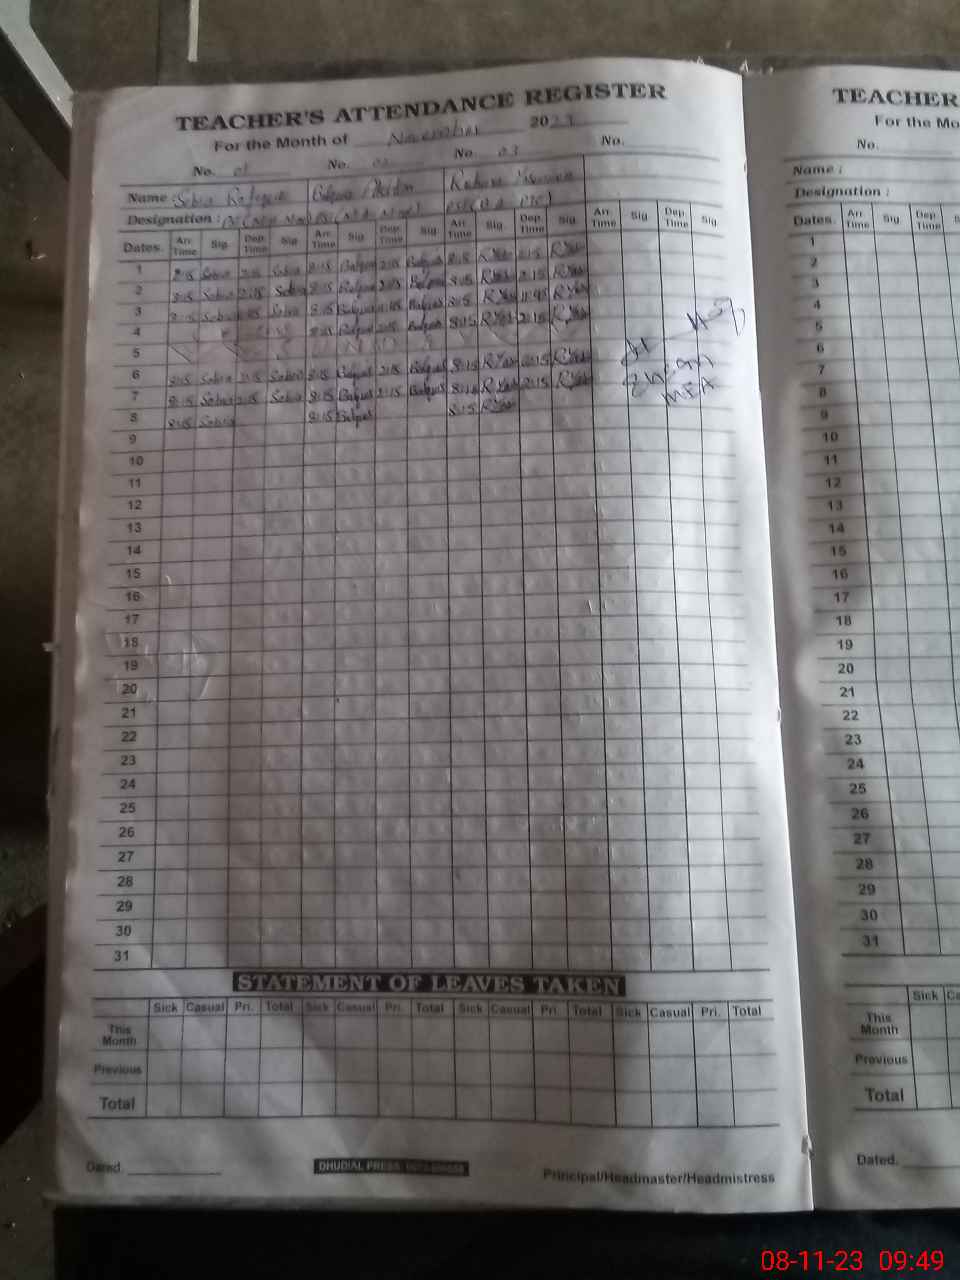 TEACHER'S ATTENDANCE REGISTER
For the Month of November 2023
No. 01 No. 02 No. 03 No.
Name :
Designation :
Dates. Arr. Time Sig Dep. Time Sig Arr. Time Sig Dep. Time Sig Arr. Time Sig Dep. Time Sig Arr. Time Sig Dep. Time Sig
1 8:15 Sobia 2:15 Sobia 8:15 Balqees 2:15 Balqees 8:15 R.Yas 2:15 R.Yas
2 8:15 Sobia 2:15 Sobia 8:15 Balqees 2:15 Balqees 8:15 R.Yas 2:15 R.Yas
3 8:15 Sobia 8:15 Balqees 8:15 R.Yas 11:45 R.Yas
4 8:15 Balqees 2:15 Balqees 8:15 R.Yas 2:15 R.Yas
5 S U N D
6 8:15 Sobia 2:15 Sobia 8:15 Balqees 2:15 Balqees 8:15 R.Yas 2:15 R.Yas
7 8:15 Sobia 2:15 Sobia 8:15 Balqees 2:15 Balqees 8:15 R.Yas 2:15 R.Yas
8 8:15 Sobia 8:15 Balqees 8:15 R.Yas
MEA
9
10
11
12
13
14
15
16
17
18
19
20
21
22
23
24
25
26
27
28
29
30
31
STATEMENT OF LEAVES TAKEN
Sick Casual Pri. Total Sick Casual Pri. Total Sick Casual Pri Total Sick Casual Pri. Total
This Month
Previous
Total
Dated.
DHUDIAL PRESS
Principal/Headmaster/Headmistress
TEACHER
For the Mo
No.
Name :
Designation :
Dates. Arr. Time Sig Dep. Time S
1
2
3
4
5
6
7
8
9
10
11
12
13
14
15
16
17
18
19
20
21
22
23
24
25
26
27
28
29
30
31
Sick Ca
This Month
Previous
Total
Dated.
08-11-23 09:49